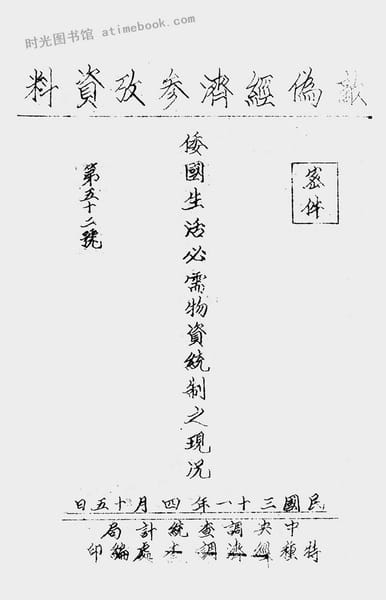 时光图书馆 atimebook.com
敵偽經濟參攷資料
密件
倭國生活必需物資統制之現況
第五十二號
民國三十一年四月十五日
中央調查統計局
特種經濟調查處編印